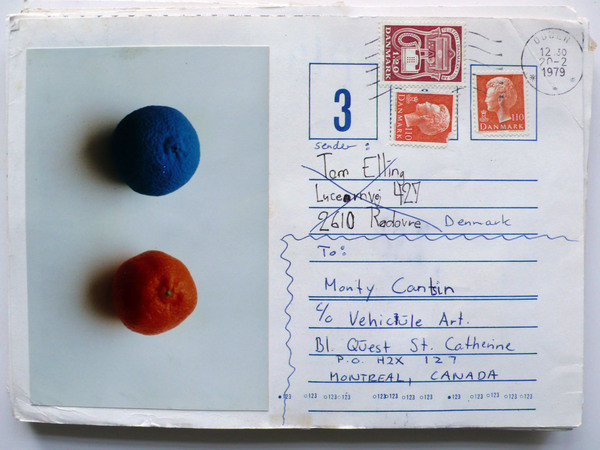 DANMARK 120
DANMARK 110
DANMARK 110
12 30
20-2
1979
3
sender:
Tom Elling
2610 Rødovre Denmark
To:
Monty Cantsin
c/o Vehicule Art.
Bl. Quest St. Catherine
P.O. H2X 1Z7
MONTREAL, CANADA
123 123 123 123 123 123 123 123 123 123 123